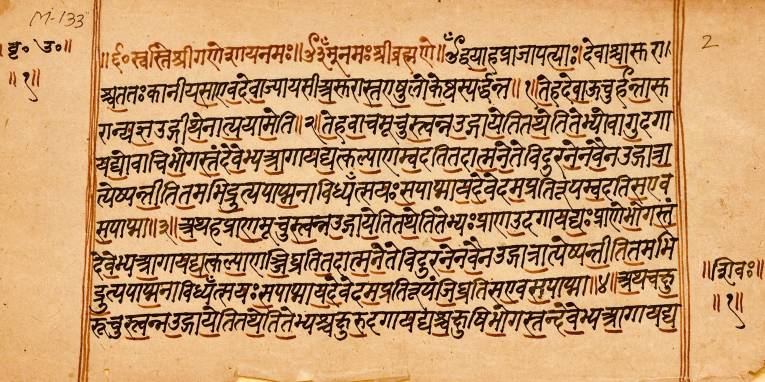 M-133
2
बृ॰उ॰॥
॥१॥
स्वस्तिश्रीगणेशायनमः॥ॐनमःश्रीब्रह्मणे॥ॐद्वयाहप्राजापत्याः।देवाश्चासुरा।
श्चततःकानीयसाएवदेवाज्यायसाअसुरास्तएषुलोकेष्वस्पर्द्धन्त॥१॥तेहदेवाऊचुर्हन्तासु
रान्यज्ञउद्गीथेनात्ययामेति॥२॥तेहवाचमूचुस्त्वन्नउद्गायेतितथेतितेभ्योवागुदगा
यद्योवाचिभोगस्तंदेवेभ्यआगायद्यत्कल्याणम्वदतितदात्मनेतेविदुरनेनवैनउद्गात्रा
त्येष्यन्तीतितमभिद्रुत्यपाप्मनाविध्यँत्सयःसपाप्मायदेवेदमप्रतिरूपम्वदतिसएव
सपाप्मा॥३॥अथहप्राणमूचुस्त्वन्नउद्गायेतितथेतितेभ्यःप्राणउदगायद्यःप्राणेभोगस्तं
देवेभ्यआगायद्यत्कल्याणञ्जिघ्रतितदात्मनेतेविदुरनेनवैनउद्गात्रात्येष्यन्तीतितमभि
द्रुत्यपाप्मनाविध्यँत्सयःसपाप्मायदेवेदमप्रतिरूपंजिघ्रतिसएवसपाप्मा॥४॥अथचक्षु
रूचुस्त्वन्नउद्गायेतितथेतितेभ्यश्चक्षुरुदगायद्यश्चक्षुषिभोगस्तन्देवेभ्यआगायद्य
॥शिवः॥
॥१॥